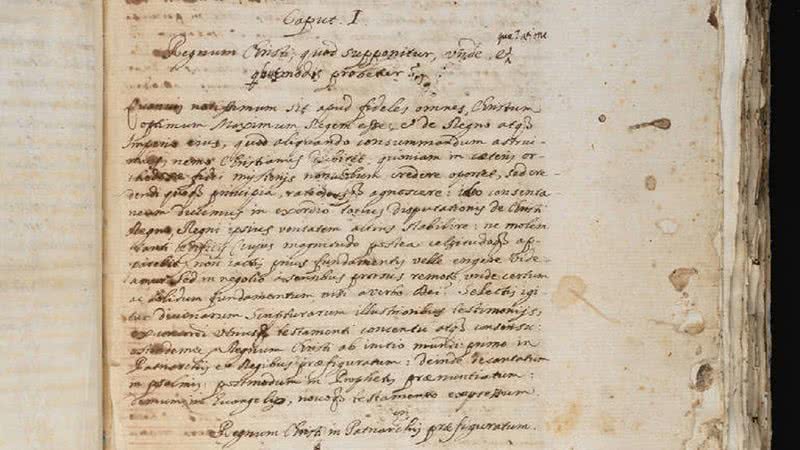 Caput. I
Regnum Christi, quod supponitur, unde et
qua ratione
probetur
notissimum sit apud fideles omnes, Christum
optimum Maximum Regem esse, et de Regno atq3
Imperio eius, quod aliquando consummandum astrui
nemo Christianus quoniam in cæteris or
fidei mysterijs credere oportet, sed cre
dendi quoq3 principia, agnoscere: consenta
neum ducimus in exordio totius disputationis de Christi
Regno, Regni ipsius veritatem altius stabilire: ne molem
tanti cuius magnitudo postea ap
parebit, non iactis prius fundamentis velle erigere vide
amur. Sed in negotio à sensibus prorsus remoto unde certum
ac solidum fundamentum nisi a verbo Dei? Selectis igi
tur divinarum Scripturarum illustrioribus testimonijs:
ex concordi utriusq3 testamenti concentu atq3 consensu:
Regnum Christi ab initio mundi primo in
Patriarchis et Regibus præfiguratum: deinde decantatum
in psalmis: postmodum in Prophetis prænuntiatum:
demum in Euangelio, novoq3 testamento expressum
Regnum Christi in Patriarchis præfiguratum.